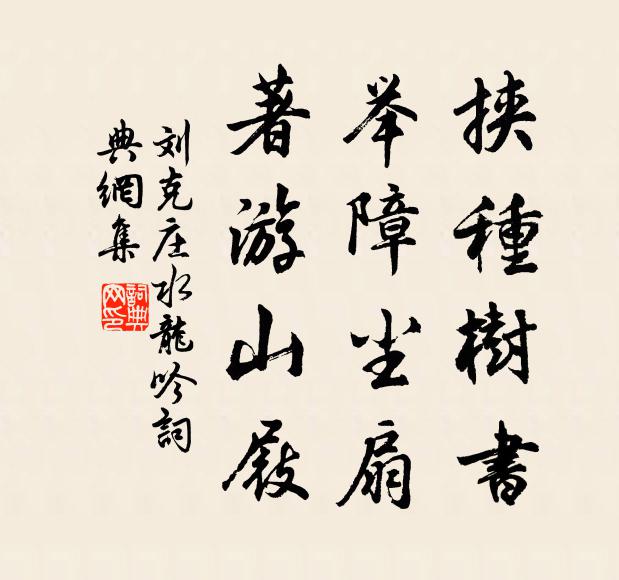 挟種樹書
举障尘扇
著游山屐
刘克庄水龍吟詞
典網集
詞典網印